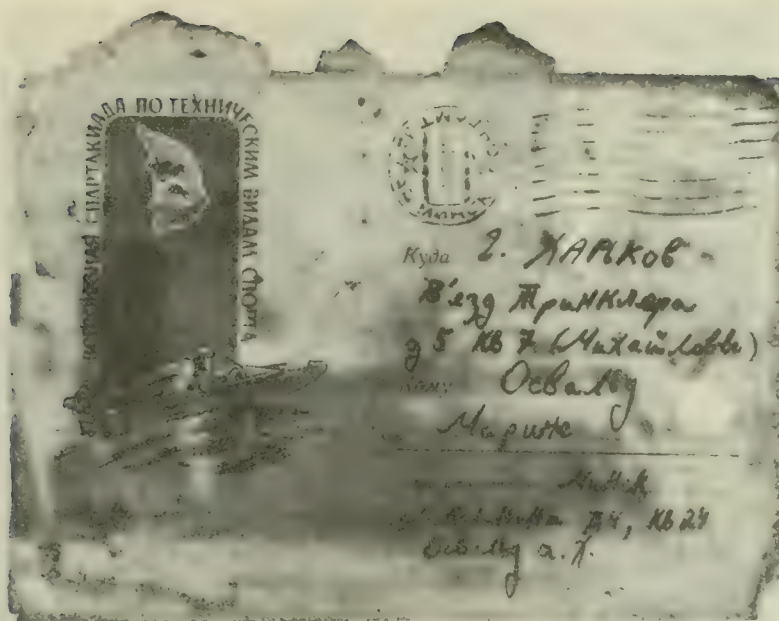 СПАРТАКИАДА ПО ТЕХНИЧЕСКИМ ВИДАМ СПОРТА
Куда г. ХАРКОВ
В'езд Тринклера
д 5 кв 7 (Михайловы)
Кому Освальд
Марине
Минск
д4, кв 24
Освальд а.